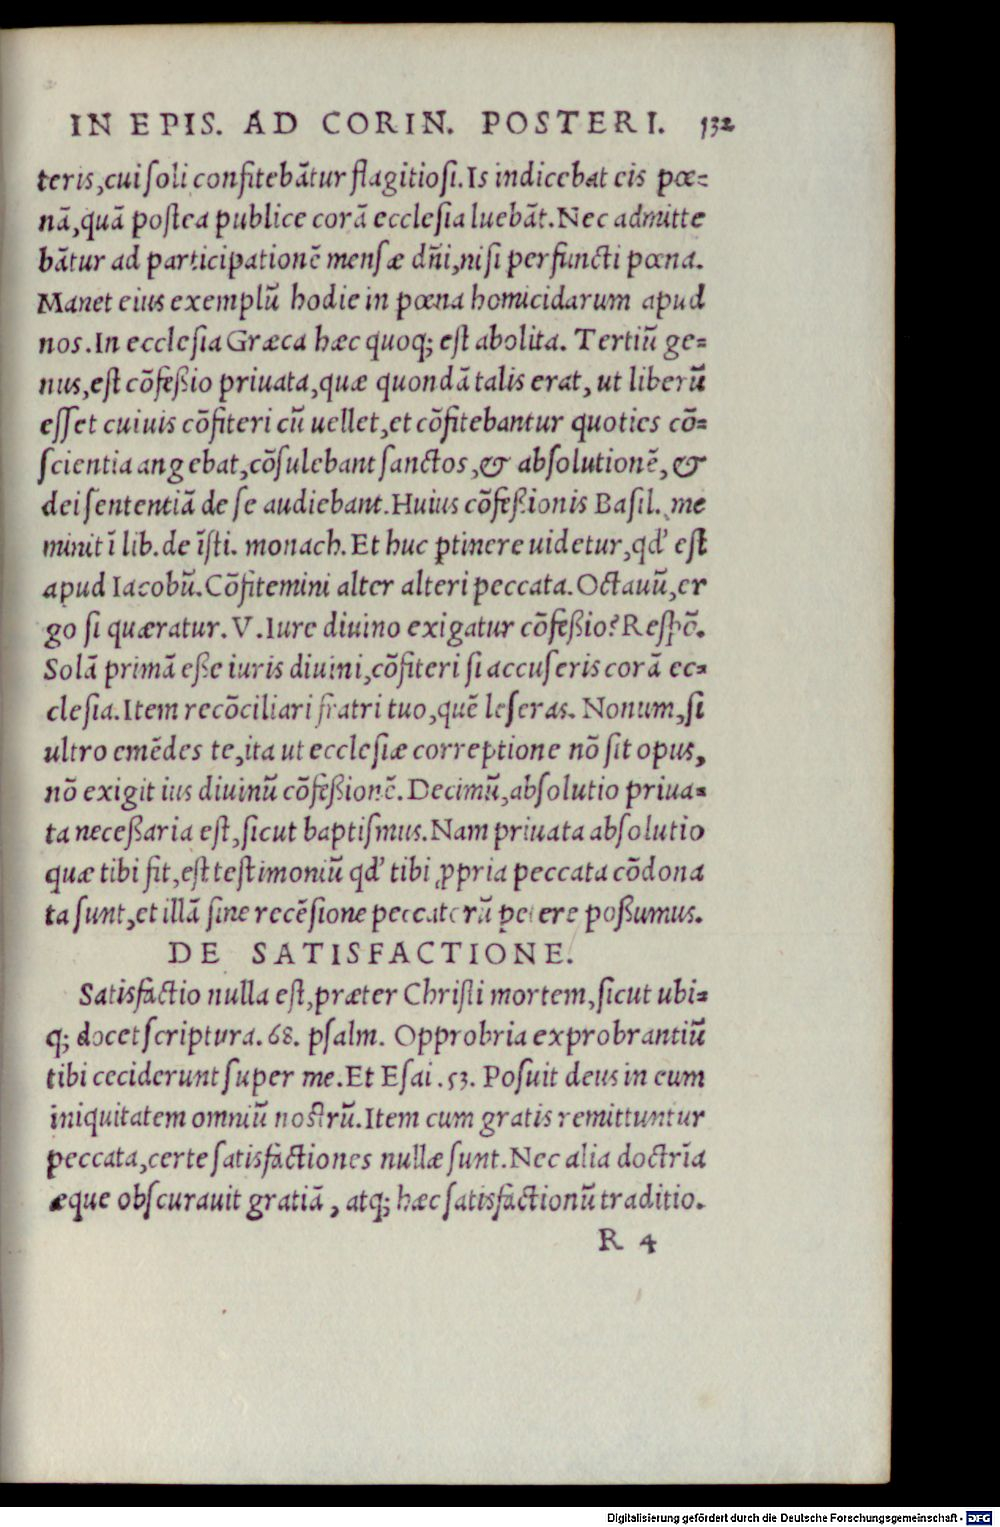 IN EPIS. AD CORIN. POSTERI. 132
teris,cui soli confitebãtur flagitiosi.Is indicebat eis pœ=
nã,quã postea publice corã ecclesia luebãt.Nec admitte
bãtur ad participationẽ mensæ dñi,nisi perfuncti pœna.
Manet eius exemplũ hodie in pœna homicidarum apud
nos.In ecclesia Græca hæc quoq; est abolita. Tertiũ ge=
nus,est cõfeßio priuata,quæ quondã talis erat, ut liberũ
esset cuiuis cõfiteri cũ uellet,et cõfitebantur quoties cõ=
scientia angebat,cõsulebant sanctos,& absolutionẽ,&
dei sententiã de se audiebant.Huius cõfeßionis Basil. me
minit ĩ lib.de ĩsti. monach.Et huc ꝑtinere uidetur,qd' est
apud Iacobũ.Cõfitemini alter alteri peccata.Octauũ,er
go si quæratur.V.Iure diuino exigatur cõfeßio?Respõ.
Solã primã eße iuris diuini,cõfiteri si accuseris corã ec=
clesia.Item recõciliari fratri tuo,quẽ leseras. Nonum,si
ultro emẽdes te,ita ut ecclesiæ correptione nõ sit opus,
nõ exigit ius diuinũ cõfeßionẽ.Decimũ,absolutio priua=
ta neceßaria est,sicut baptismus.Nam priuata absolutio
quæ tibi fit,est testimoniũ qd' tibi ꝓpria peccata cõdona
ta sunt,et illã sine recẽsione peccatorũ petere poßumus.
DE SATISFACTIONE.
Satisfactio nulla est,præter Christi mortem,sicut ubi=
q; docet scriptura. 68. psalm. Opprobria exprobrantiũ
tibi ceciderunt super me.Et Esai .53. Posuit deus in eum
iniquitatem omniũ nostrũ.Item cum gratis remittuntur
peccata,certe satisfactiones nullæ sunt.Nec alia doctrĩa
æque obscurauit gratiã, atq; hæc satisfactionũ traditio.
R 4
Digitalisierung gefördert durch die Deutsche Forschungsgemeinschaft - DFG